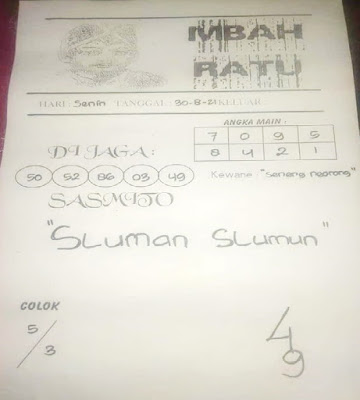 MBAH
RATU
HARI : Senin TANGGAL : 30-8-21 KELUAR
ANGKA MAIN :
7 0 9 5
8 4 2 1
DI JAGA :
50 52 86 03 49
Kewane : "serieng ngorong"
SASMITO
"SLUMAN SLUMUN"
COLOK
5/3
4
9